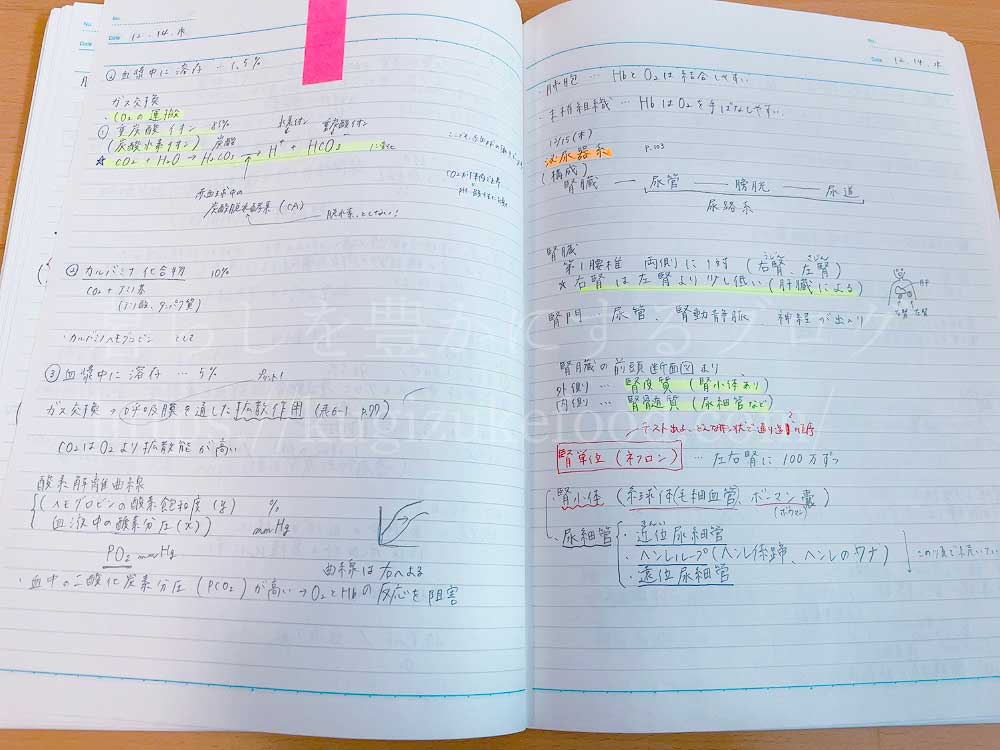 No.
Date 12.14.水
②血漿中に溶存 … 1.5%
ガス交換
・CO₂の運搬
①重炭酸イオン 85%
(炭酸水素イオン) 炭酸 水素イオン 重炭酸イオン
☆ CO₂ + H₂O → H₂CO₃ → H⁺ + HCO₃ に変化
赤血球中の
炭酸脱水酵素 (CA)
脱水素、としない!
②カルバミノ化合物 10%
CO₂ + アミノ基
(アミノ酸、タンパク質)
・カルバミノヘモグロビン として
③血漿中に溶存 … 5%
プリント!
ガス交換 → 呼吸膜を通した拡散作用 (表6-1 p.99)
CO₂はO₂より拡散能が高い
酸素解離曲線
ヘモグロビンの酸素飽和度 (y) %
血液中の酸素分圧 (x) mmHg
PO₂ mmHg
曲線は右へよる
・血中の二酸化炭素分圧 (PCO₂) が高い → O₂とHbの反応を阻害
No.
Date 12.14.水
・肺胞 … HbとO₂は結合しやすい
・末梢組織 … HbはO₂を手ばなしやすい
12/15(木)
泌尿器系 p.103
(構成)
腎臓 ― 尿管 ― 膀胱 ― 尿道
尿路系
腎臓
第1腰椎 両側に1対 (右腎、左腎)
☆ 右腎は左腎より少し低い (肝臓による)
肝
右腎 左腎
腎門…尿管、腎動静脈、神経が出入り
腎臓の前頭断面図より、
外側 … 腎皮質 (腎小体あり)
内側 … 腎髄質 (尿細管など)
腎単位 (ネフロン) … 左右腎に100万ずつ
・腎小体 (糸球体(毛細血管)、ボーマン嚢)
(ボウマン)
・尿細管
・近位尿細管
・ヘンレループ (ヘンレ係蹄、ヘンレのワナ)
・遠位尿細管
暮らしを豊かにするブログ